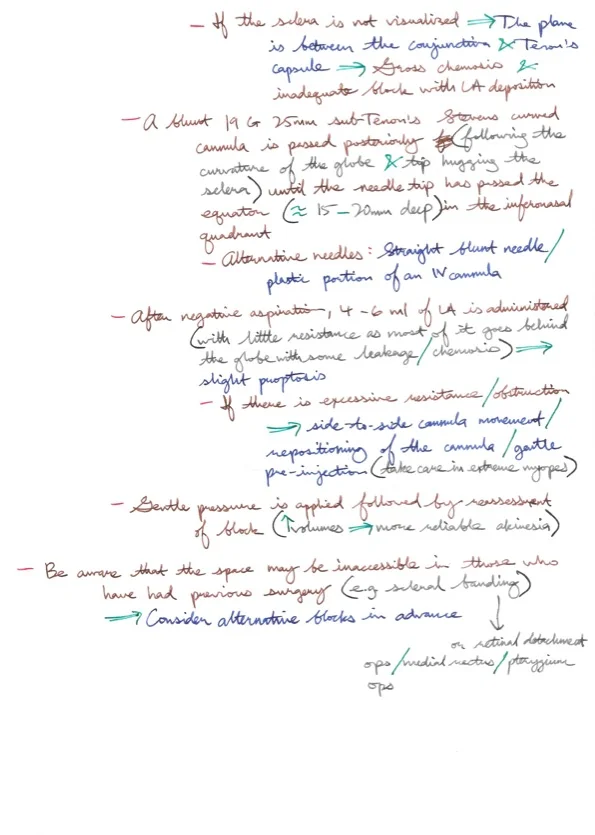 - If the sclera is not visualized ⇒ The plane
is between the conjunctiva & Tenon's
capsule → Gross chemosis &
inadequate block with LA deposition
- A blunt 19 G 25mm sub-Tenon's Stevens curved
cannula is passed posteriorly (following the
curvature of the globe & tip hugging the
sclera) until the needle tip has passed the
equator (≈ 15-20mm deep) in the inferonasal
quadrant
- Alternative needles: Straight blunt needle/
plastic portion of an IV cannula
- After negative aspiration, 4-6 ml of LA is administered
(with little resistance as most of it goes behind
the globe with some leakage/chemosis) →
slight proptosis
- If there is excessive resistance/obstruction
→ side-to-side cannula movement/
repositioning of the cannula/gentle
pre-injection (take care in extreme myopes)
- Gentle pressure is applied followed by reassessment
of block (↑volumes → more reliable akinesia)
- Be aware that the space may be inaccessible in those who
have had previous surgery (e.g scleral banding)
→ Consider alternative blocks in advance
or retinal detachment
ops/medial rectus/pterygium
ops